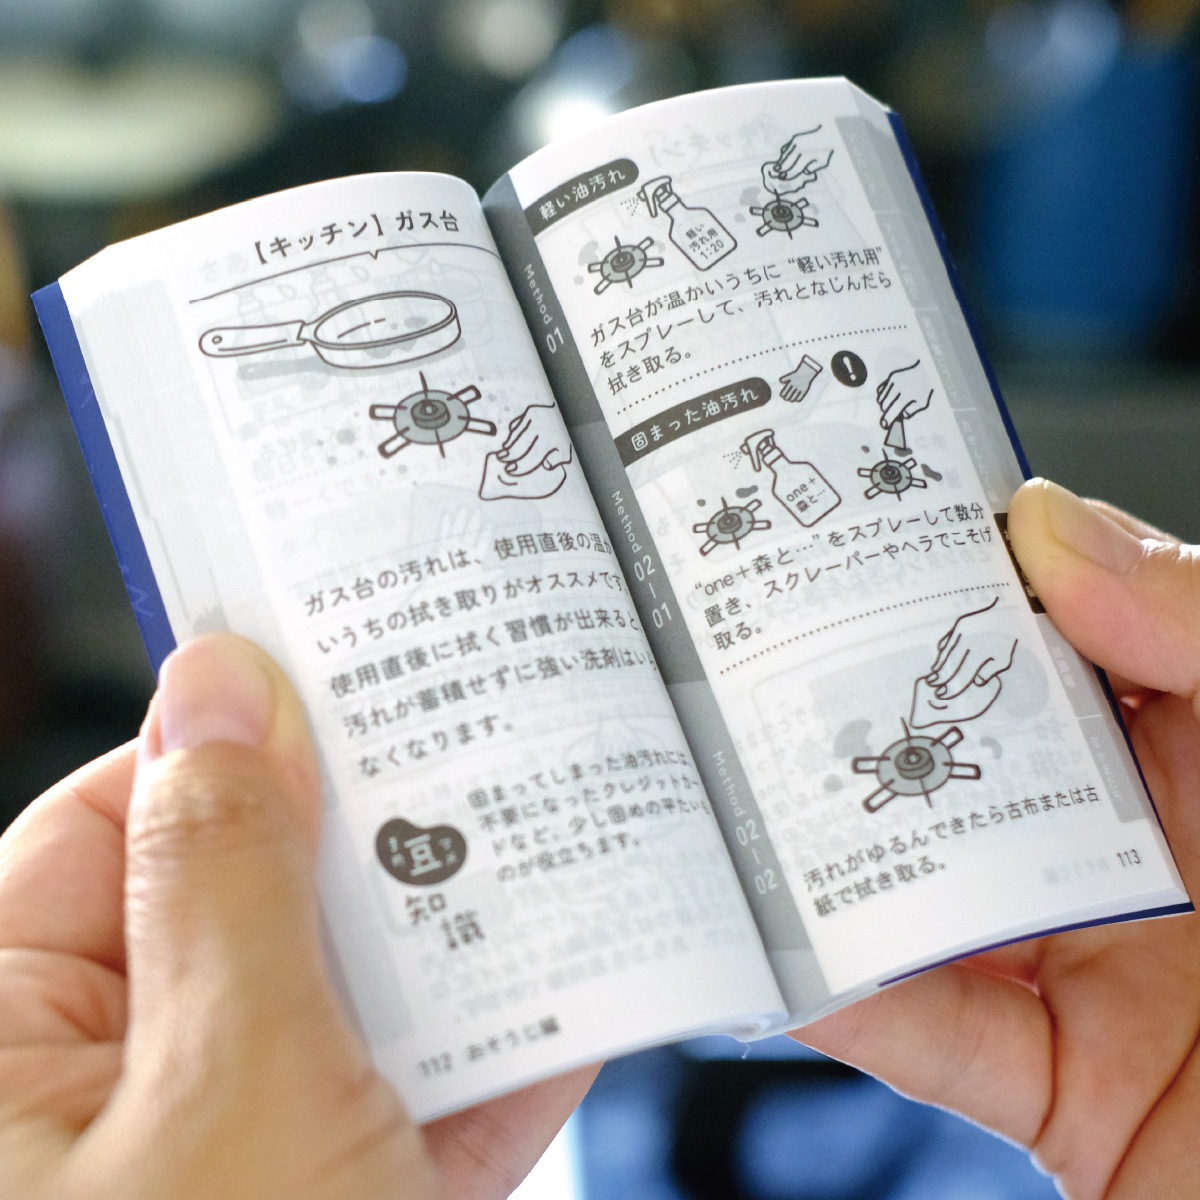 【キッチン】ガス台
ガス台の汚れは、使用直後の温か
いうちの拭き取りがオススメです
使用直後に拭く習慣が出来ると
汚れが蓄積せずに強い洗剤はいら
なくなります。
豆
知
識
固まってしまった油汚れには
不要になったクレジットカー
ドなど、少し固めの平たいも
のが役立ちます。
112 おそうじ編
Method 01
軽い油汚れ
軽い
汚れ用
1:20
ガス台が温かいうちに“軽い汚れ用”
をスプレーして、汚れとなじんだら
拭き取る。
Method 02-01
固まった油汚れ
!
one+
森と…
“one+森と…”をスプレーして数分
置き、スクレーパーやヘラでこそげ
取る。
Method 02-02
汚れがゆるんできたら古布または古
紙で拭き取る。
113